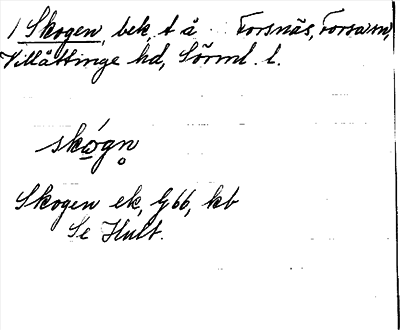 1 Skogen, bek, t å Forsnäs, Forssa sn,
Villåttinge hd, Sörml. l.
skógn̥
Skogen ek, G 66, kb
Se Hult.